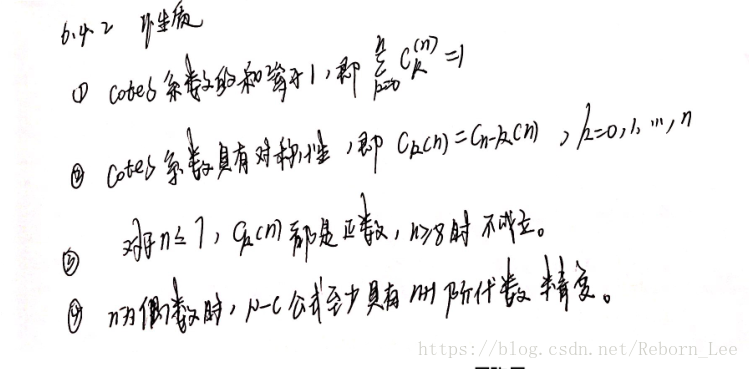 6.4.2 性质
① Cotes系数的和等于1,即 \sum_{k=0}^{n} C_k^{(n)} =1
② Cotes系数具有对称性,即 C_k(n)=C_{n-k}(n) , k=0,1,...,n
③ 对于n≤7, C_k(n)都是正数,n≥8时不成立。
④ n为偶数时,N-C公式至少具有n+1阶代数精度。
https://blog.csdn.net/Reborn_Lee